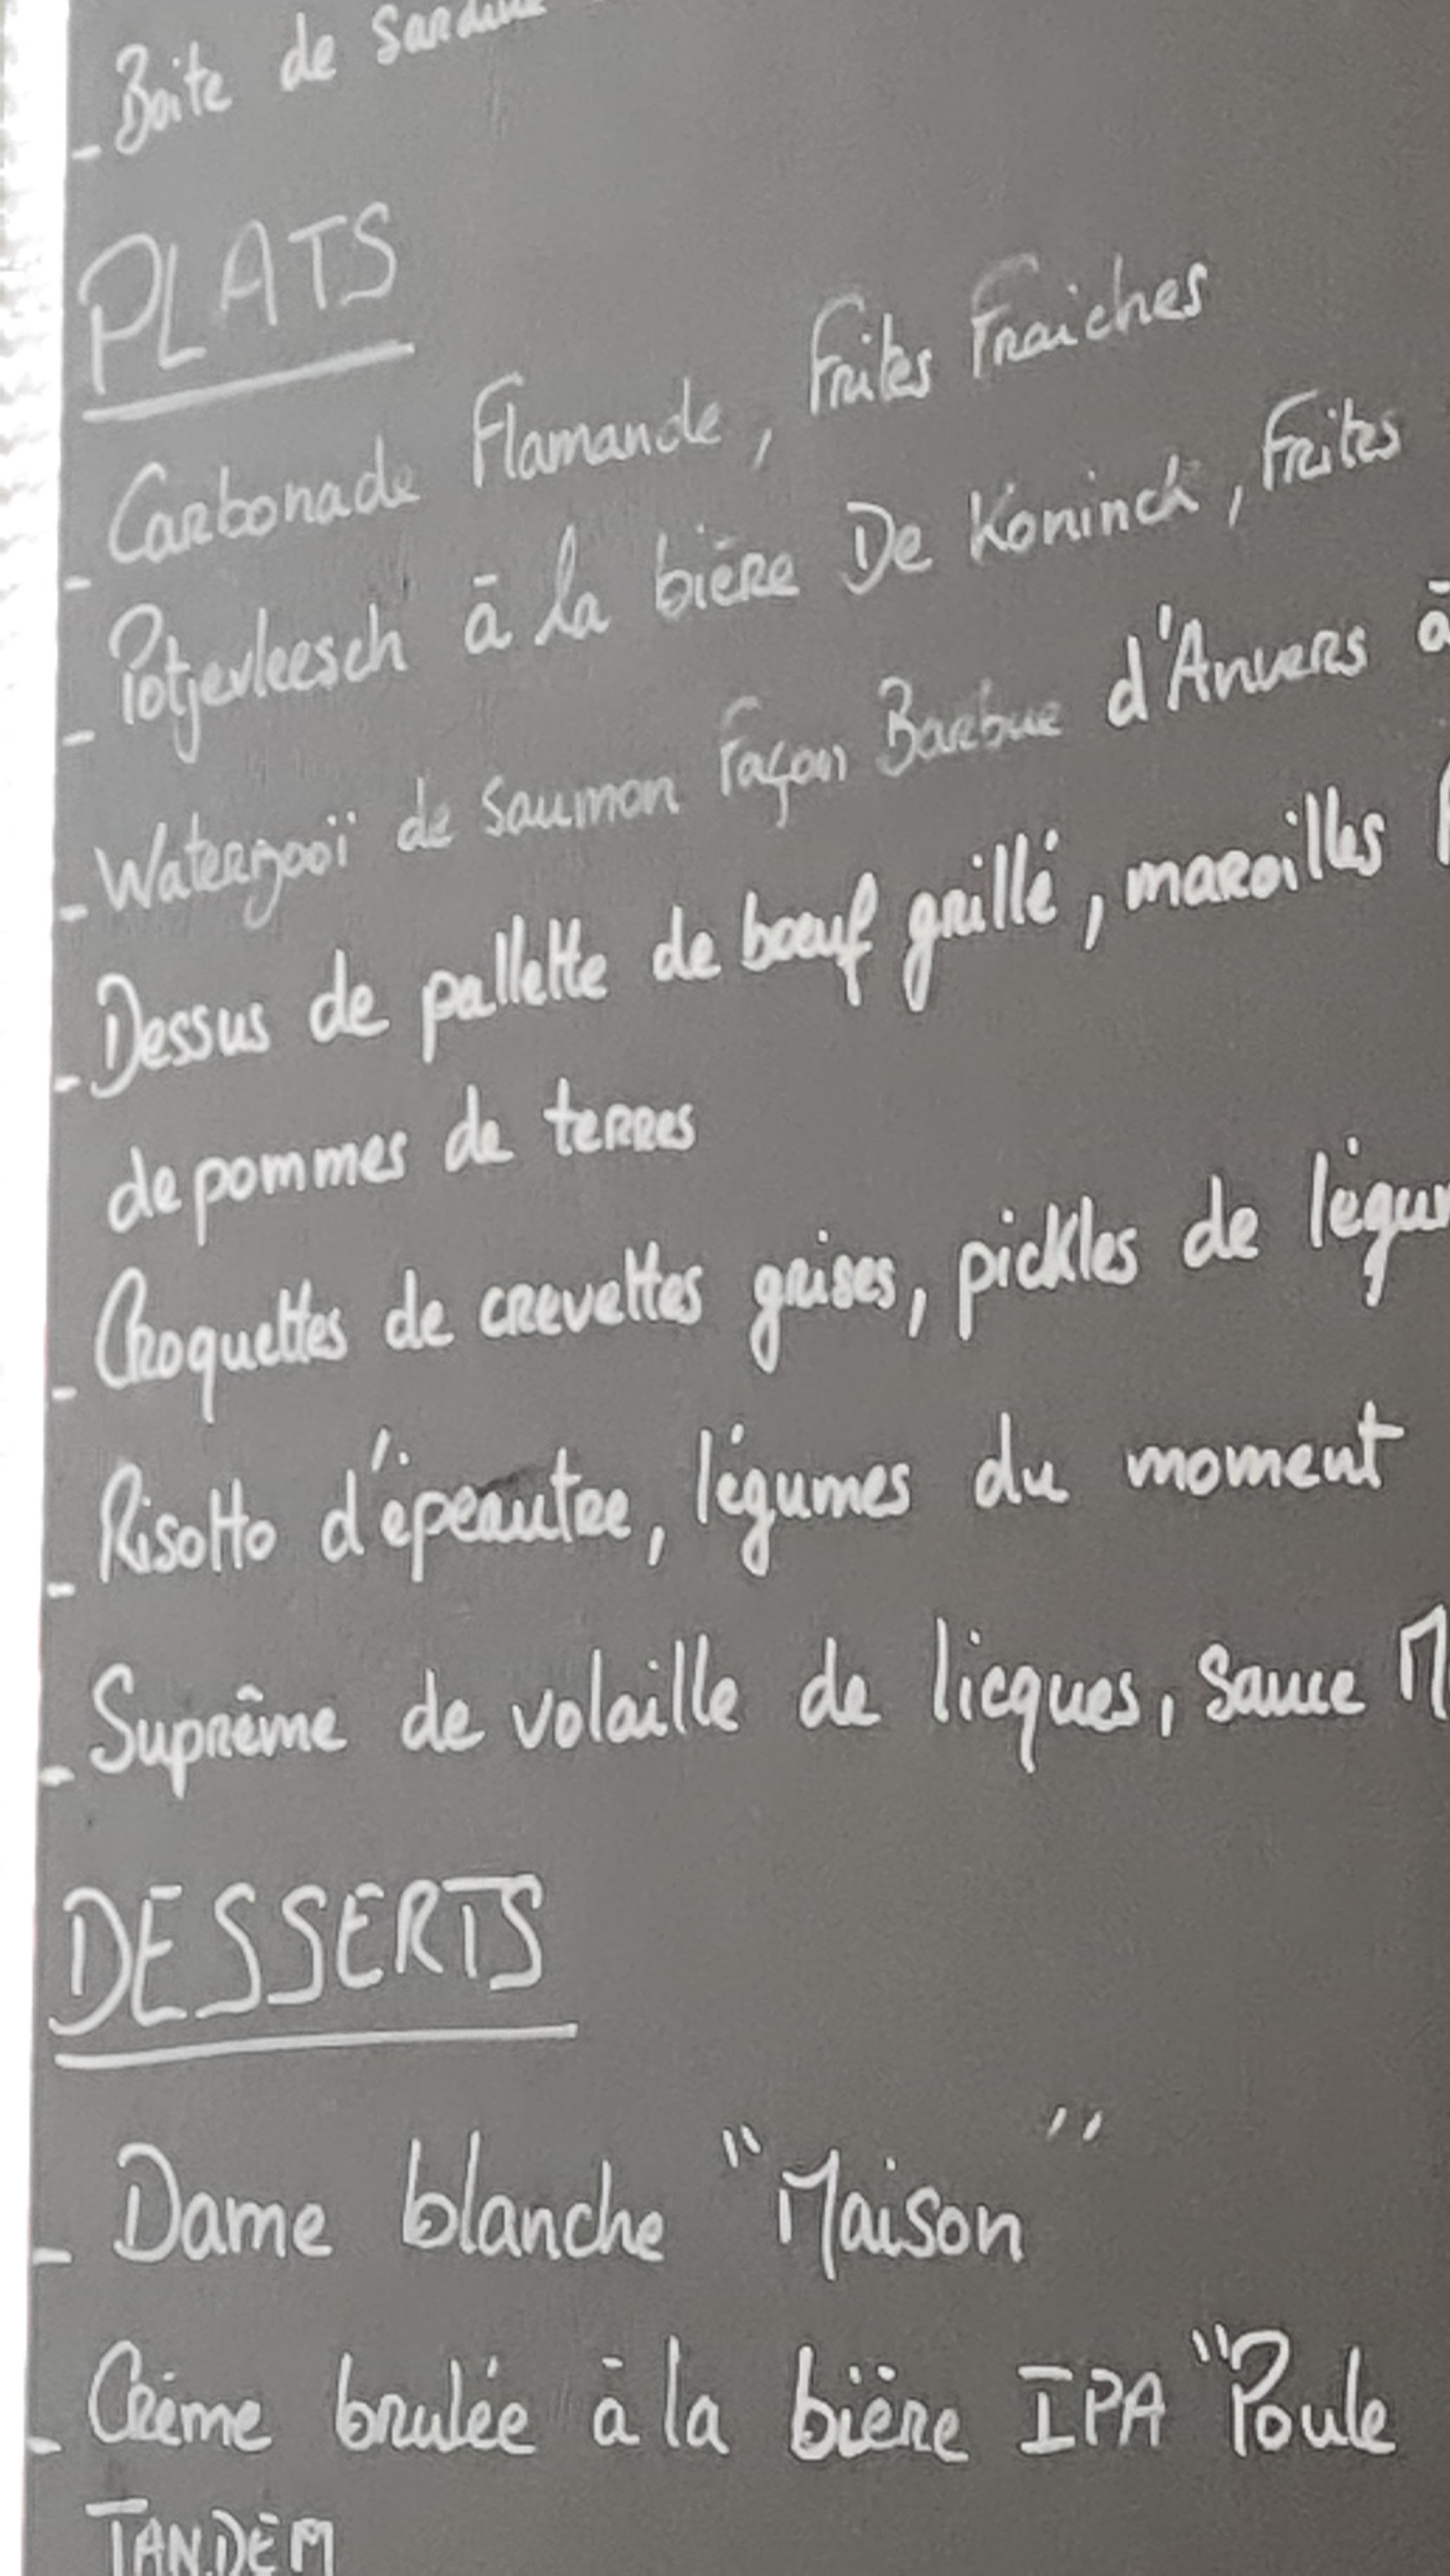 - Boite de
PLATS
- Carbonade Flamande, Frites Fraiches
- Potjevleesch à la bière De Koninck, Frites
- Waterzooï de saumon Façon Barbue d'Anvers à
- Dessus de pallette de bœuf grillé, maroilles
de pommes de terres
- Croquettes de crevettes grises, pickles de
- Risotto d'épeautre, légumes du moment
- Suprême de volaille de licques, sauce
DESSERTS
- Dame blanche "Maison"
- Crème brulée à la bière IPA "Poule
TANDEM